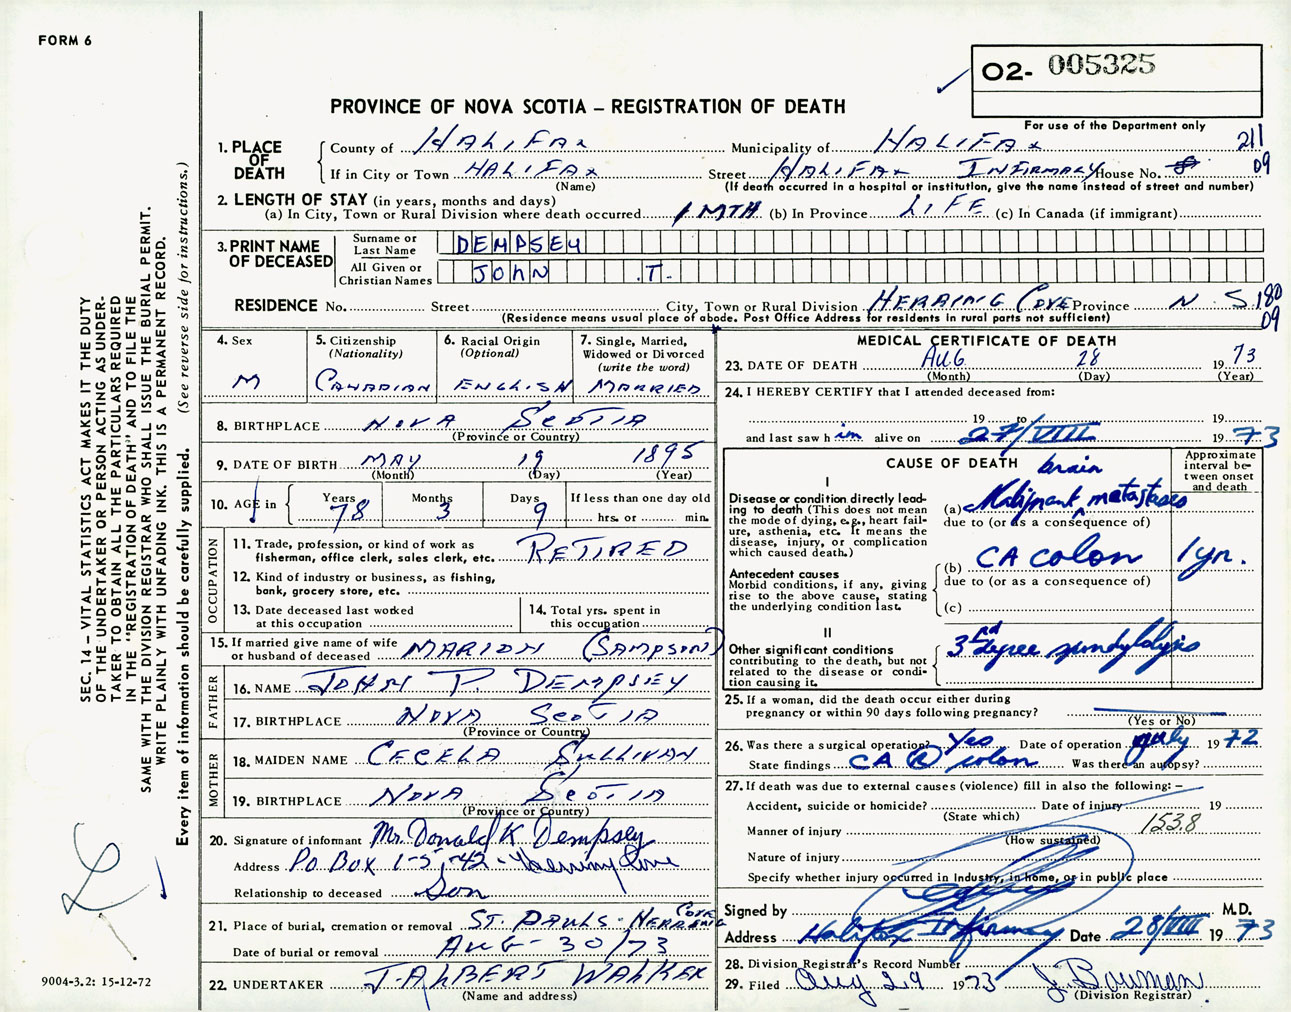 FORM 6
O2- 005325
PROVINCE OF NOVA SCOTIA – REGISTRATION OF DEATH
For use of the Department only
1. PLACE OF DEATH
County of HALIFAX Municipality of HALIFAX 211
If in City or Town HALIFAX Street HALIFAX INFIRMARY House No. 09
(Name) (If death occurred in a hospital or institution, give the name instead of street and number)
2. LENGTH OF STAY (in years, months and days)
(a) In City, Town or Rural Division where death occurred 1 MTH (b) In Province LIFE (c) In Canada (if immigrant)
3. PRINT NAME OF DECEASED
Surname or Last Name DEMPSEY
All Given or Christian Names JOHN .T.
RESIDENCE No. Street City, Town or Rural Division HERRING COVE Province N.S. 180
(Residence means usual place of abode. Post Office Address for residents in rural parts not sufficient) 09
4. Sex M
5. Citizenship (Nationality) CANADIAN
6. Racial Origin (Optional) ENGLISH
7. Single, Married, Widowed or Divorced (write the word) MARRIED
8. BIRTHPLACE NOVA SCOTIA
(Province or Country)
9. DATE OF BIRTH MAY 19 1895
(Month) (Day) (Year)
10. AGE in Years 78 Months 3 Days 9 If less than one day old hrs. or min.
OCCUPATION
11. Trade, profession, or kind of work as fisherman, office clerk, sales clerk, etc. RETIRED
12. Kind of industry or business, as fishing, bank, grocery store, etc.
13. Date deceased last worked at this occupation
14. Total yrs. spent in this occupation
15. If married give name of wife or husband of deceased MARION (SAMPSON)
FATHER
16. NAME JOHN P. DEMPSEY
17. BIRTHPLACE NOVA SCOTIA
(Province or Country)
MOTHER
18. MAIDEN NAME CECELA SULLIVAN
19. BIRTHPLACE NOVA SCOTIA
(Province or Country)
20. Signature of informant Mr. Donald K Dempsey
Address P.O. Box 1-5-42 - Herring Cove
Relationship to deceased Son
21. Place of burial, cremation or removal ST. PAULS. HERRING COVE
Date of burial or removal AUG - 30/73
22. UNDERTAKER J. ALBERT WALKER
(Name and address)
MEDICAL CERTIFICATE OF DEATH
23. DATE OF DEATH AUG 28 1973
(Month) (Day) (Year)
24. I HEREBY CERTIFY that I attended deceased from:
19 to 19
and last saw h im alive on 27/VIII 1973
CAUSE OF DEATH
Approximate interval between onset and death
I
Disease or condition directly leading to death (This does not mean the mode of dying, e.g., heart failure, asthenia, etc. It means the disease, injury, or complication which caused death.)
(a) Malignant brain metastases
due to (or as a consequence of)
Antecedent causes
Morbid conditions, if any, giving rise to the above cause, stating the underlying condition last.
(b) CA colon 1 yr.
due to (or as a consequence of)
(c)
II
Other significant conditions
contributing to the death, but not related to the disease or condition causing it.
3rd degree spondylolysis
25. If a woman, did the death occur either during pregnancy or within 90 days following pregnancy?
(Yes or No)
26. Was there a surgical operation? Yes Date of operation July 1972
State findings CA R colon Was there an autopsy?
27. If death was due to external causes (violence) fill in also the following: –
Accident, suicide or homicide? Date of injury 19
(State which)
Manner of injury 153.8
(How sustained)
Nature of injury
Specify whether injury occurred in Industry, in home, or in public place
Signed by M.D.
Address Halifax Infirmary Date 28/VIII 1973
28. Division Registrar's Record Number
29. Filed Aug 29 1973 J. Bowman
(Division Registrar)
SEC. 14 – VITAL STATISTICS ACT MAKES IT THE DUTY
OF THE UNDERTAKER OR PERSON ACTING AS UNDER-
TAKER TO OBTAIN ALL THE PARTICULARS REQUIRED
IN THE "REGISTRATION OF DEATH" AND TO FILE THE
SAME WITH THE DIVISION REGISTRAR WHO SHALL ISSUE THE BURIAL PERMIT.
WRITE PLAINLY WITH UNFADING INK. THIS IS A PERMANENT RECORD.
Every item of information should be carefully supplied. (See reverse side for instructions.)
9004-3.2: 15-12-72